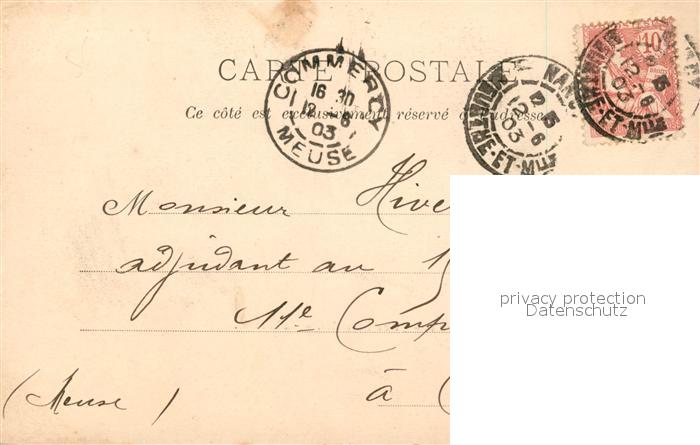 CARTE POSTALE
Ce côté est exclusivement réservé à l'adresse
COMMERCY
16 30
12 - 6
03
MEUSE
NANCY
12 - 6
03
MEURTHE-ET-M
10
12 - 6
03
Monsieur
adjudant au
11e Comp
à
(Meuse)
privacy protection
Datenschutz